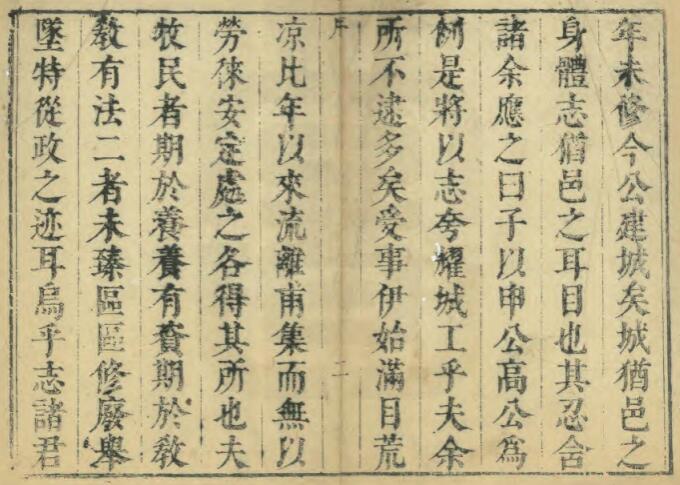 年未修今公建城矣城猶邑之
身體志猶邑之耳目也其忍舍
諸余應之曰子以申公高公為
例是將以志夸耀城工乎夫余
所不逮多矣受事伊始滿目荒
序 二
凉比年以來流離甫集而無以
勞倈安定處之各得其所也夫
牧民者期於養養有資期於敎
敎有法二者未臻區區修廢舉
墜特從政之迹耳烏乎志諸君